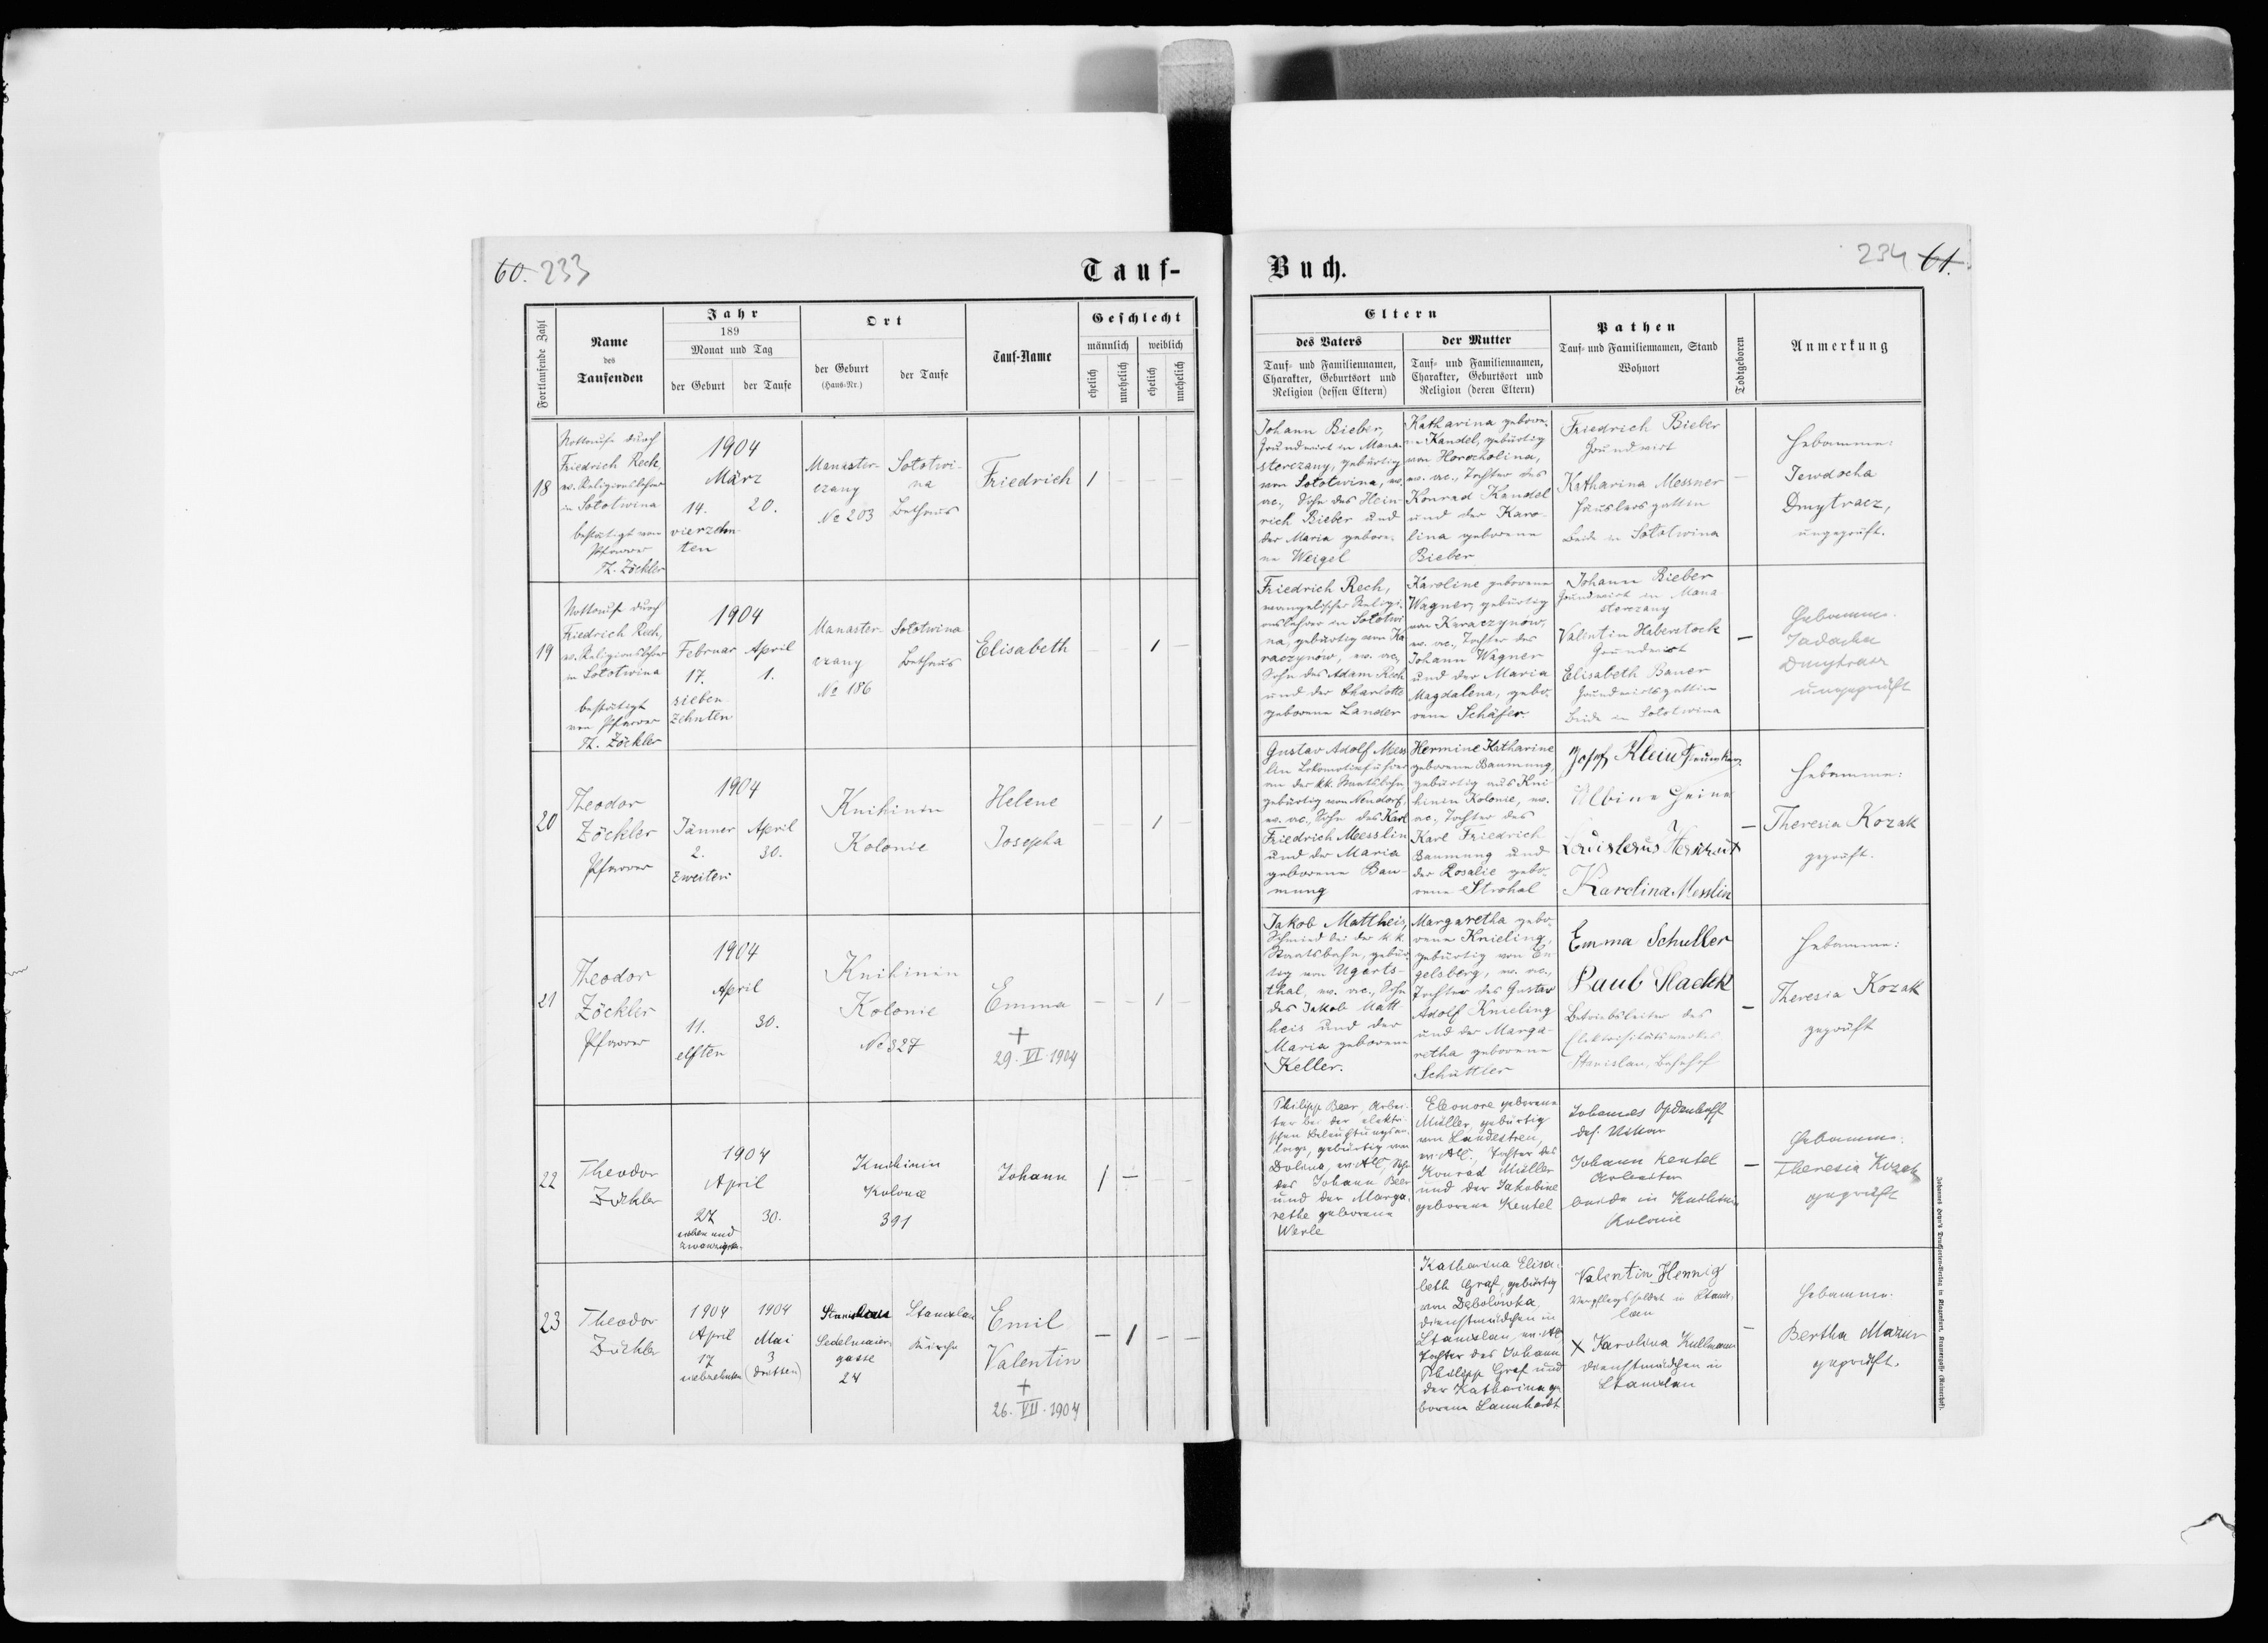 60. 233
Tauf-
Fortlaufende Zahl
Name
des
Taufenden
Jahr
189
Monat und Tag
der Geburt
der Taufe
Ort
der Geburt
(Haus-Nr.)
der Taufe
Tauf-Name
Geschlecht
männlich
weiblich
ehelich
unehelich
ehelich
unehelich
18
Nottaufe durch
Friedrich Rech,
ev. Religionslehrer
in Sołotwina
bestätigt von
Pfarrer
Th. Zöckler
1904
März
14.
20.
vierzehn-
ten
Manaster-
czany
No 203
Sołotwi-
na
Bethaus
Friedrich
1
19
Nottaufe durch
Friedrich Rech,
ev. Religionslehrer
in Sołotwina
bestätigt
von Pfarrer
Th. Zöckler
1904
Februar
April
17.
1.
sieben-
zehnten
Manaster-
czany
No 186
Sołotwina
Bethaus
Elisabeth
1
20
Theodor
Zöckler
Pfarrer
1904
Jänner
April
2.
30.
zweiten
Knihinin
Kolonie
Helene
Josepha
1
21
Theodor
Zöckler
Pfarrer
1904
April
11.
30.
elften
Knihinin
Kolonie
No 327
Emma
+
29. VI. 1904
1
22
Theodor
Zöckler
1904
April
27
30.
sieben und
zwanzigsten
Knihinin
Kolonie
391
Johann
1 —
23
Theodor
Zöckler
1904
April
17
siebzehnten
1904
Mai
3
(dritten)
Stanislau
Sedelmaier-
gasse
24
Stanislau
Kirche
Emil
Valentin
+
26. VII. 1904
— 1 — —
Buch.
234 61.
Eltern
des Vaters
Tauf- und Familiennamen,
Charakter, Geburtsort und
Religion (dessen Eltern)
der Mutter
Tauf- und Familiennamen,
Charakter, Geburtsort und
Religion (deren Eltern)
Pathen
Tauf- und Familiennamen, Stand
Wohnort
Todtgeboren
Anmerkung
Johann Bieber,
Grundwirt in Mana-
sterczany, gebürtig
von Sołotwina, ev.
ac., Sohn des Hein-
rich Bieber und
der Maria gebore-
ne Weigel
Katharina gebore-
ne Kandel, gebürtig
von Horocholina,
ev. ac., Tochter des
Konrad Kandel
und der Karo-
lina geborene
Bieber
Friedrich Bieber
Grundwirt
Katharina Messner
Häuslersgattin
beide in Sołotwina
—
Hebamme:
Jewdocha
Dmytracz,
ungeprüft.
Friedrich Rech,
evangelischer Religi-
onslehrer in Sołotwi-
na, gebürtig von Ka-
raczynów, ev. ac.,
Sohn des Adam Rech
und der Charlotte
geborene Lander
Karoline geborene
Wagner, gebürtig
von Karaczynów,
ev. ac., Tochter des
Johann Wagner
und der Maria
Magdalena, gebo-
rene Schäfer.
Johann Bieber
Grundwirt in Mana-
sterczany
Valentin Haberstock
Grundwirt
Elisabeth Bauer
Grundwirtsgattin
beide in Sołotwina
—
Hebamme.
Dmytracz
ungeprüft
Gustav Adolf Mess-
lin Lokomotivführer
an der kk. Staatsbahn,
gebürtig von Neudorf,
ev. ac., Sohn des Karl
Friedrich Messslin
und der Maria
geborene Bau-
mung
Hermine Katharine
geborene Baumung,
gebürtig aus Kni-
hinin Kolonie, ev.
ac., Tochter des
Karl Friedrich
Baumung und
der Rosalie gebo-
rene Strohal
Josef Klein
Albine Heine
Karolina Messlin
—
Hebamme:
Theresia Kozak
geprüft.
Jakob Mattheis,
Schmied bei der k.k.
Staatsbahn, gebür-
tig von Ugarts-
thal, ev. ac., Sohn
des Jakob Matt-
heis und der
Maria geborene
Keller.
Margaretha gebo-
rene Knieling,
gebürtig von En-
gelsberg, ev. ac.,
Tochter des Gustav
Adolf Knieling
und der Marga-
retha geborene
Schuttler
Emma Schuller
Betriebsleiter des
Elektrizitätswerkes
Stanislau, Bahnhof
—
Hebamme:
Theresia Kozak
geprüft
Philipp Beer, Arbei-
ter bei der elektri-
schen Beleuchtungsan-
lage, gebürtig von
Dolina, ev. AC, Sohn
des Johann Beer
und der Marga-
rethe geborene
Werle
Eleonore geborene
Müller, gebürtig
von Landestreu,
ev. AC., Tochter des
Konrad Müller
und der Jakobine
geborene Keutel
Johannes Opdenhoff
des. Vikar
Johann Keutel
Arbeiter
beide in Knihinin
Kolonie
—
Hebamme:
Theresia Kozak
geprüft
Katharina Elisa-
beth Graf, gebürtig
von Dębolówka,
Dienstmädchen in
Stanislau, ev. AC
Tochter des Johann
Philipp Graf und
der Katharina ge-
borene Lannhardt
Valentin Hennig
Verpflegssoldat in Stanis-
lau
X Karolina Kullmann
Dienstmädchen in
Stanislau
—
Hebamme.
Bertha Mazur
geprüft.
Johannes Heyn's Drucksorten-Verlag in Klagenfurt, Kramergasse (Reinerhof).